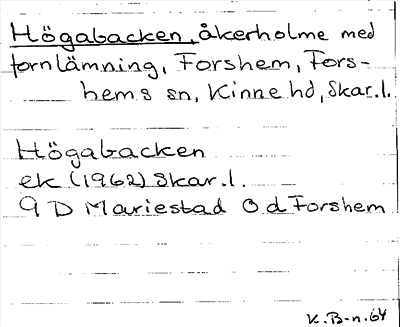 Högabacken, åkerholme med
fornlämning, Forshem, Fors-
hems sn, Kinne hd, Skar.l.
Högabacken
ek (1962) Skar.l.
9 D Mariestad O d Forshem
K.B-n.64